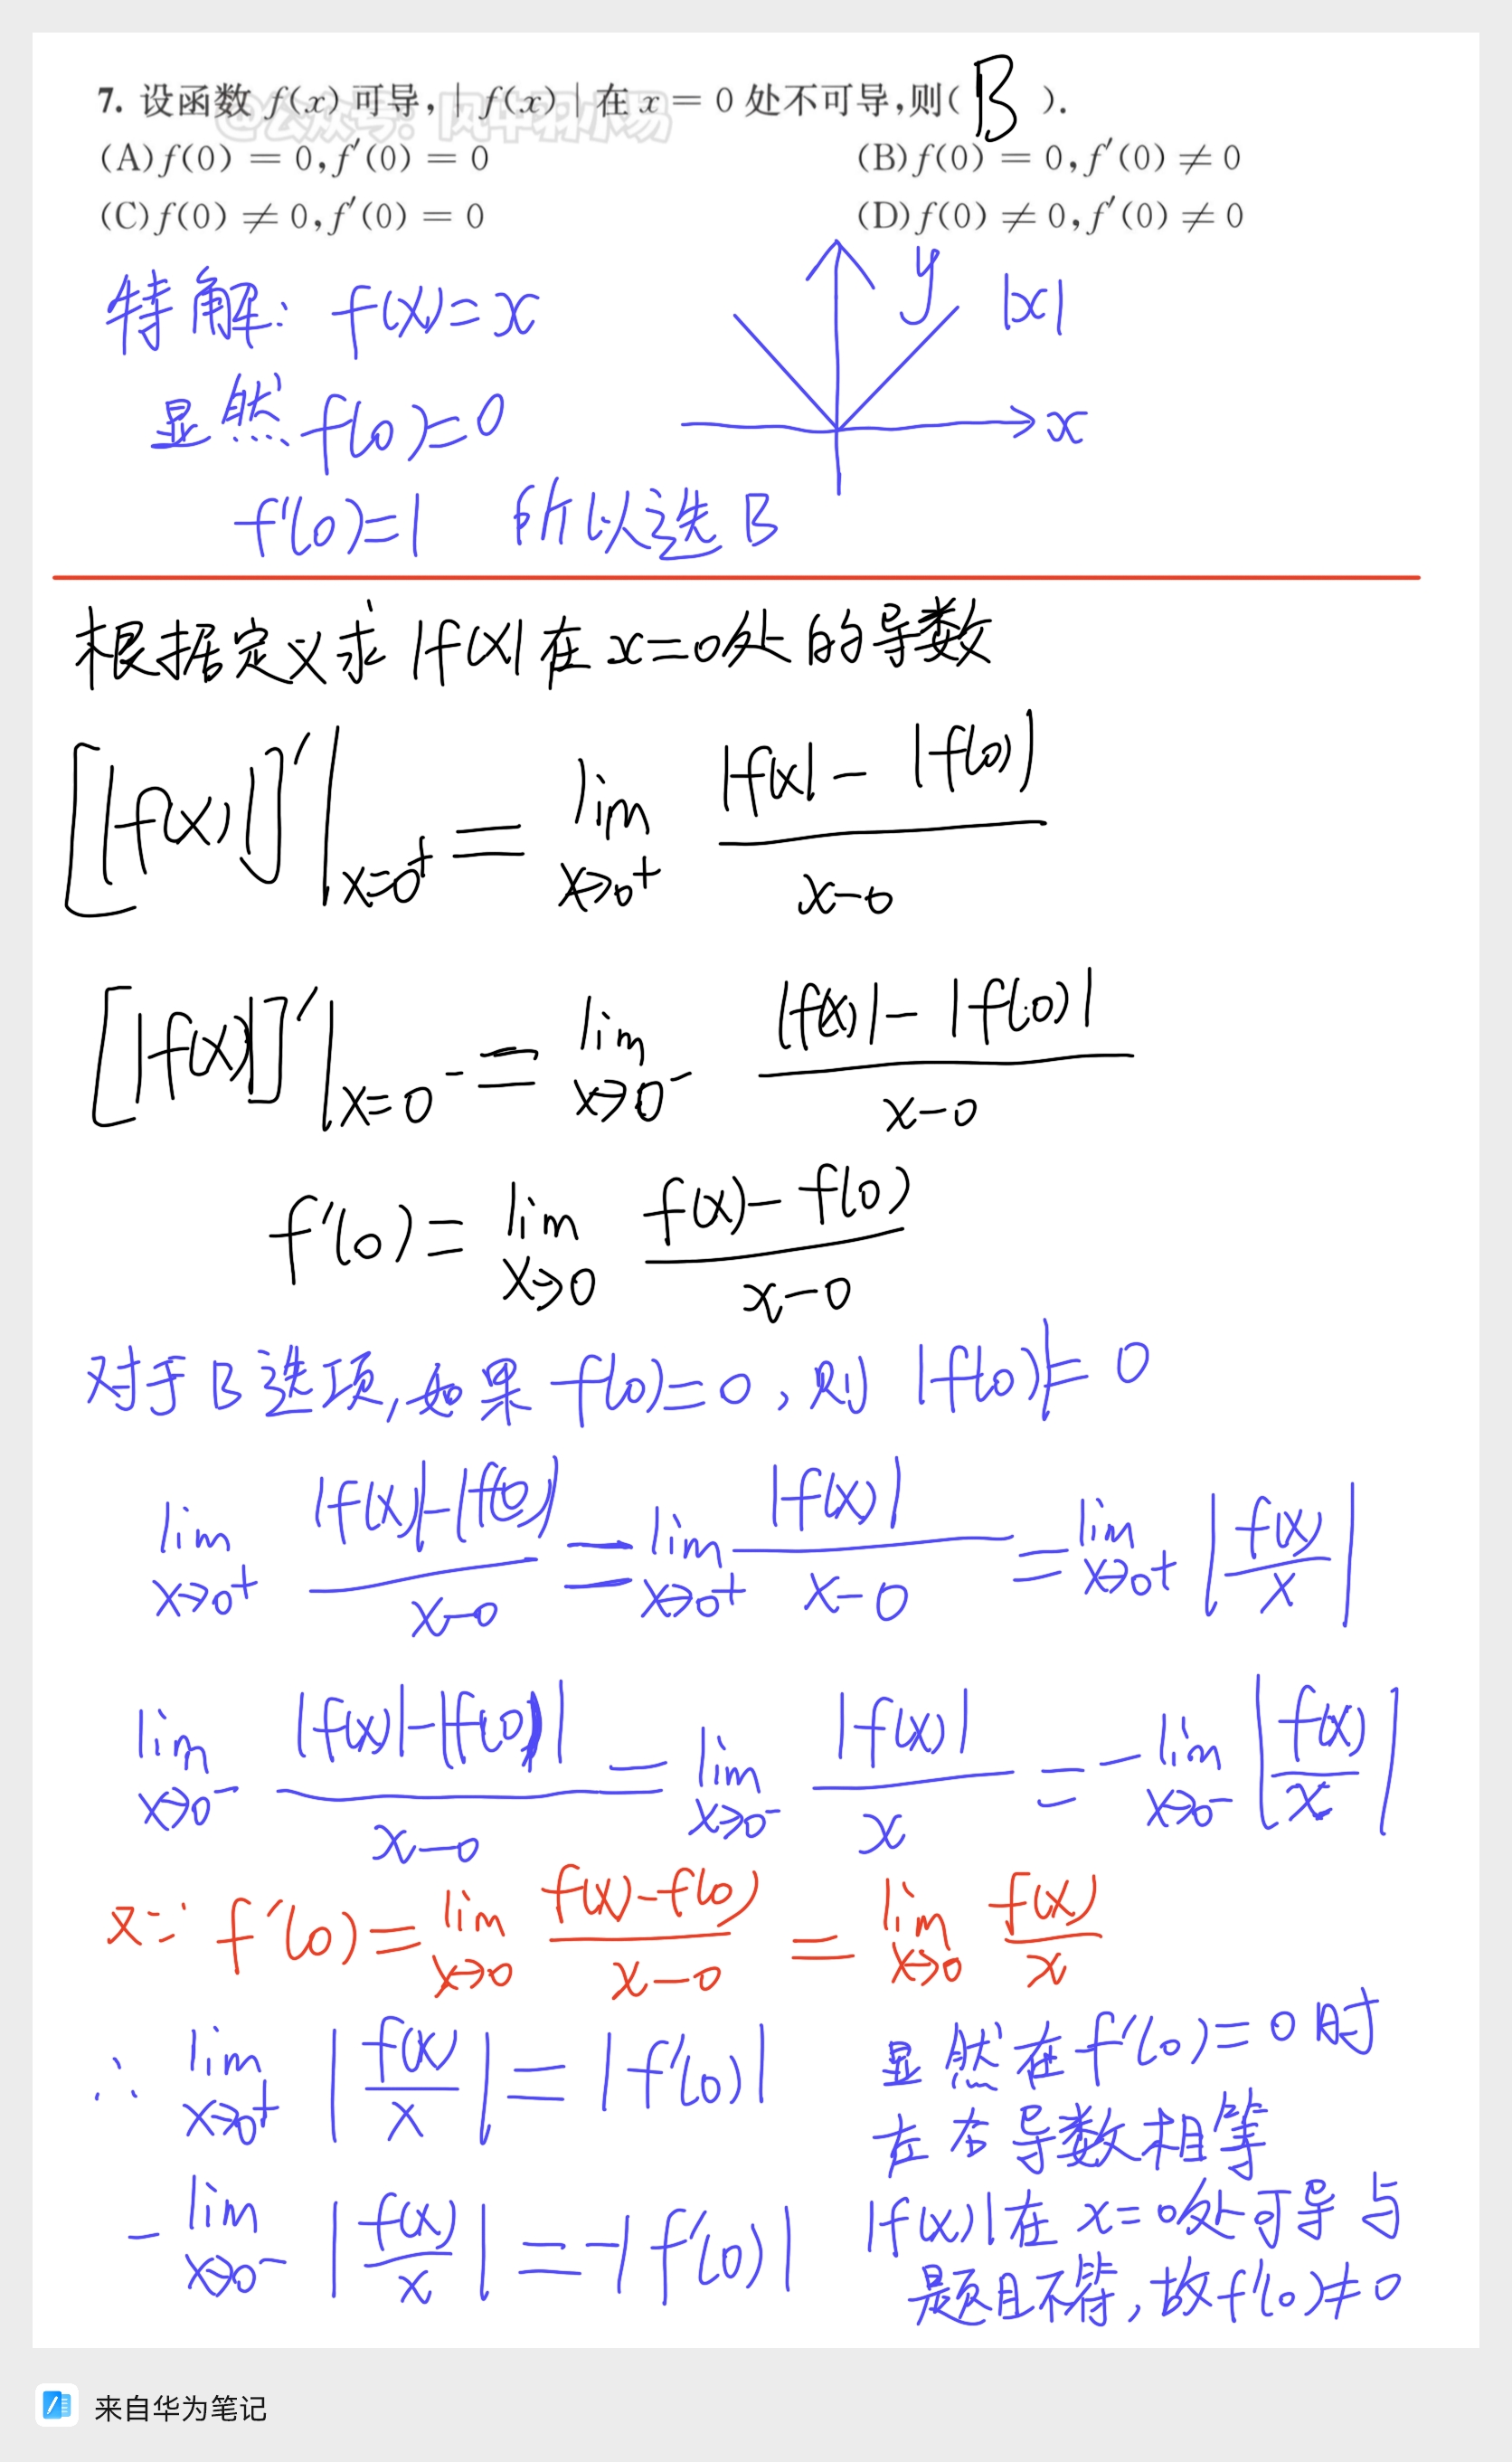 7. 设函数 f(x) 可导, | f(x) | 在 x = 0 处不可导,则( B ).
@公众号: 风中羽小易
(A) f(0) = 0, f′(0) = 0
(B) f(0) = 0, f′(0) ≠ 0
(C) f(0) ≠ 0, f′(0) = 0
(D) f(0) ≠ 0, f′(0) ≠ 0
特解: f(x)=x
y |x|
显然 f(0)=0
x
f′(0)=1 所以选B
根据定义求|f(x)|在x=0处的导数
[|f(x)|]′|x=0⁺ = lim x→0⁺ (|f(x)| - |f(0)|)/(x-0)
[|f(x)|]′|x=0⁻ = lim x→0⁻ (|f(x)| - |f(0)|)/(x-0)
f′(0) = lim x→0 (f(x) - f(0))/(x-0)
对于B选项,如果f(0)=0,则|f(0)|=0
lim x→0⁺ (|f(x)|-|f(0)|)/(x-0) = lim x→0⁺ |f(x)|/(x-0) = lim x→0⁺ |f(x)/x|
lim x→0⁻ (|f(x)|-|f(0)|)/(x-0) = lim x→0⁻ |f(x)|/x = -lim x→0⁻ |f(x)/x|
又∵ f′(0) = lim x→0 (f(x)-f(0))/(x-0) = lim x→0 f(x)/x
∴ lim x→0⁺ |f(x)/x| = |f′(0)|
- lim x→0⁻ |f(x)/x| = -|f′(0)|
显然在f′(0)=0时
左右导数相等
|f(x)|在x=0处可导与
题目不符,故f′(0)≠0
来自华为笔记